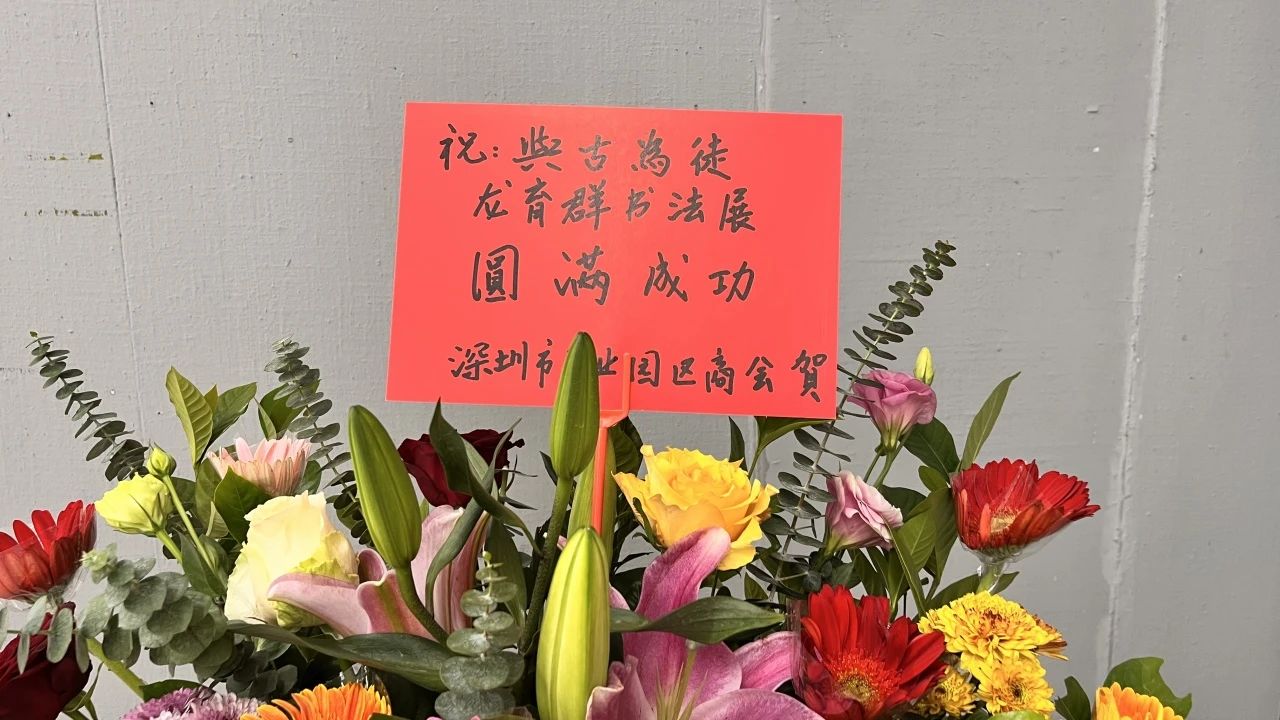 祝:與古為徒
龙育群书法展
圓满成功
深圳市业园区商会賀